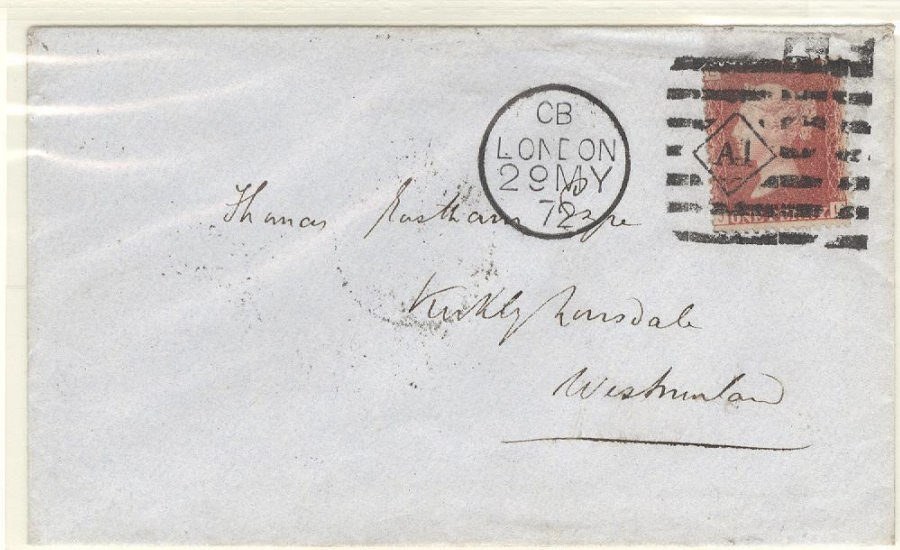 CB
LONDON
29 MY
72
A1
ONE PENNY
Thomas Eastham Esqre
Kirkby Lonsdale
Westmorland